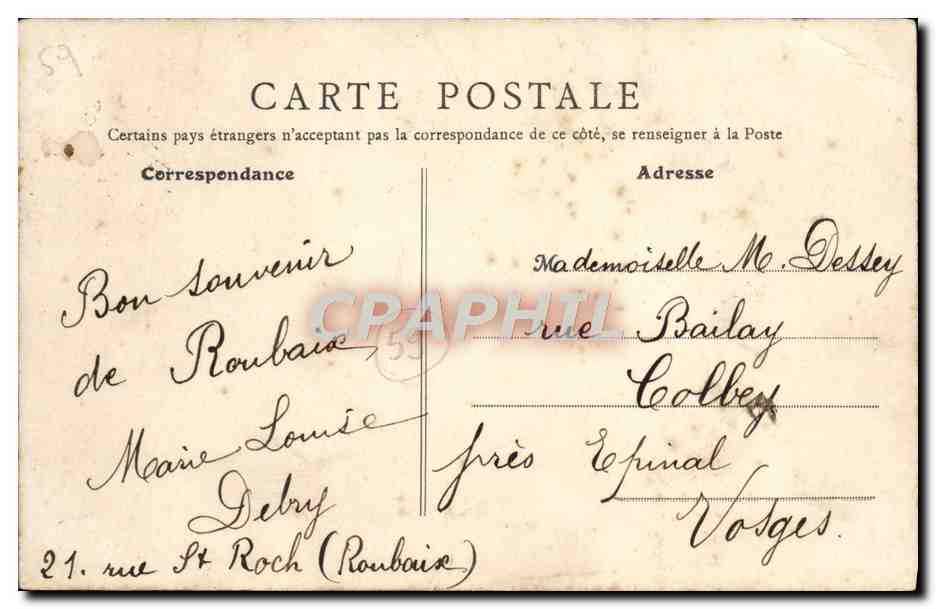 59
CARTE POSTALE
Certains pays étrangers n'acceptant pas la correspondance de ce côté, se renseigner à la Poste
Correspondance
Bon souvenir
de Roubaix,
Marie Louise
Debry
21. rue St Roch (Roubaix)
59
CPAPHIL
Adresse
Mademoiselle M. Dessey
rue Bailay
Golbey
près Epinal
Vosges.